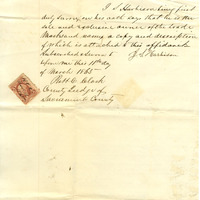 J. S. Harbison being first
duly sworn, on his oath says that he is the
sole and exclusive owner of the Trade
Mark and name a copy and description
of which is attached to this affidavit.
Subscribed & Sworn to J. S. Harbison
before me this 18th day
of March 1865
Robt C. Clark
County Judge of
Sacramento County